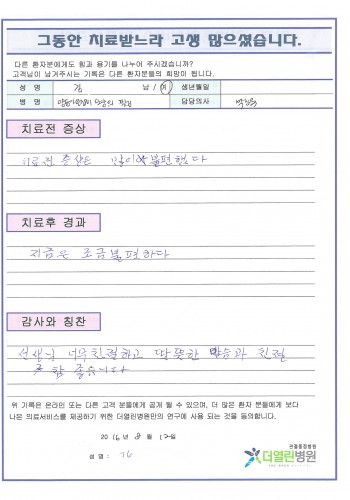 그동안 치료받느라 고생 많으셨습니다.
다른 환자분에게도 힘과 용기를 나누어 주시겠습니까?
고객님이 남겨주시는 기록은 다른 환자분들의 희망이 됩니다.
성 명 김 남 / 여 생년월일
병 명 담당의사
치료전 증상
치료전 증상은 많이 불편했다
치료후 경과
지금은 조금불편하다
감사와 칭찬
선생님 너무친절하고 따뜻한 마음과 친절
참 좋습니다
위 기록은 온라인 또는 다른 고객 분들에게 공개 될 수 있으며, 더 많은 환자 분들에게 보다
나은 의료서비스를 제공하기 위한 더열린병원만의 연구에 사용 되는 것을 동의합니다.
2016년 8월 12일
성 명 : 김
관절중점병원
더열린병원